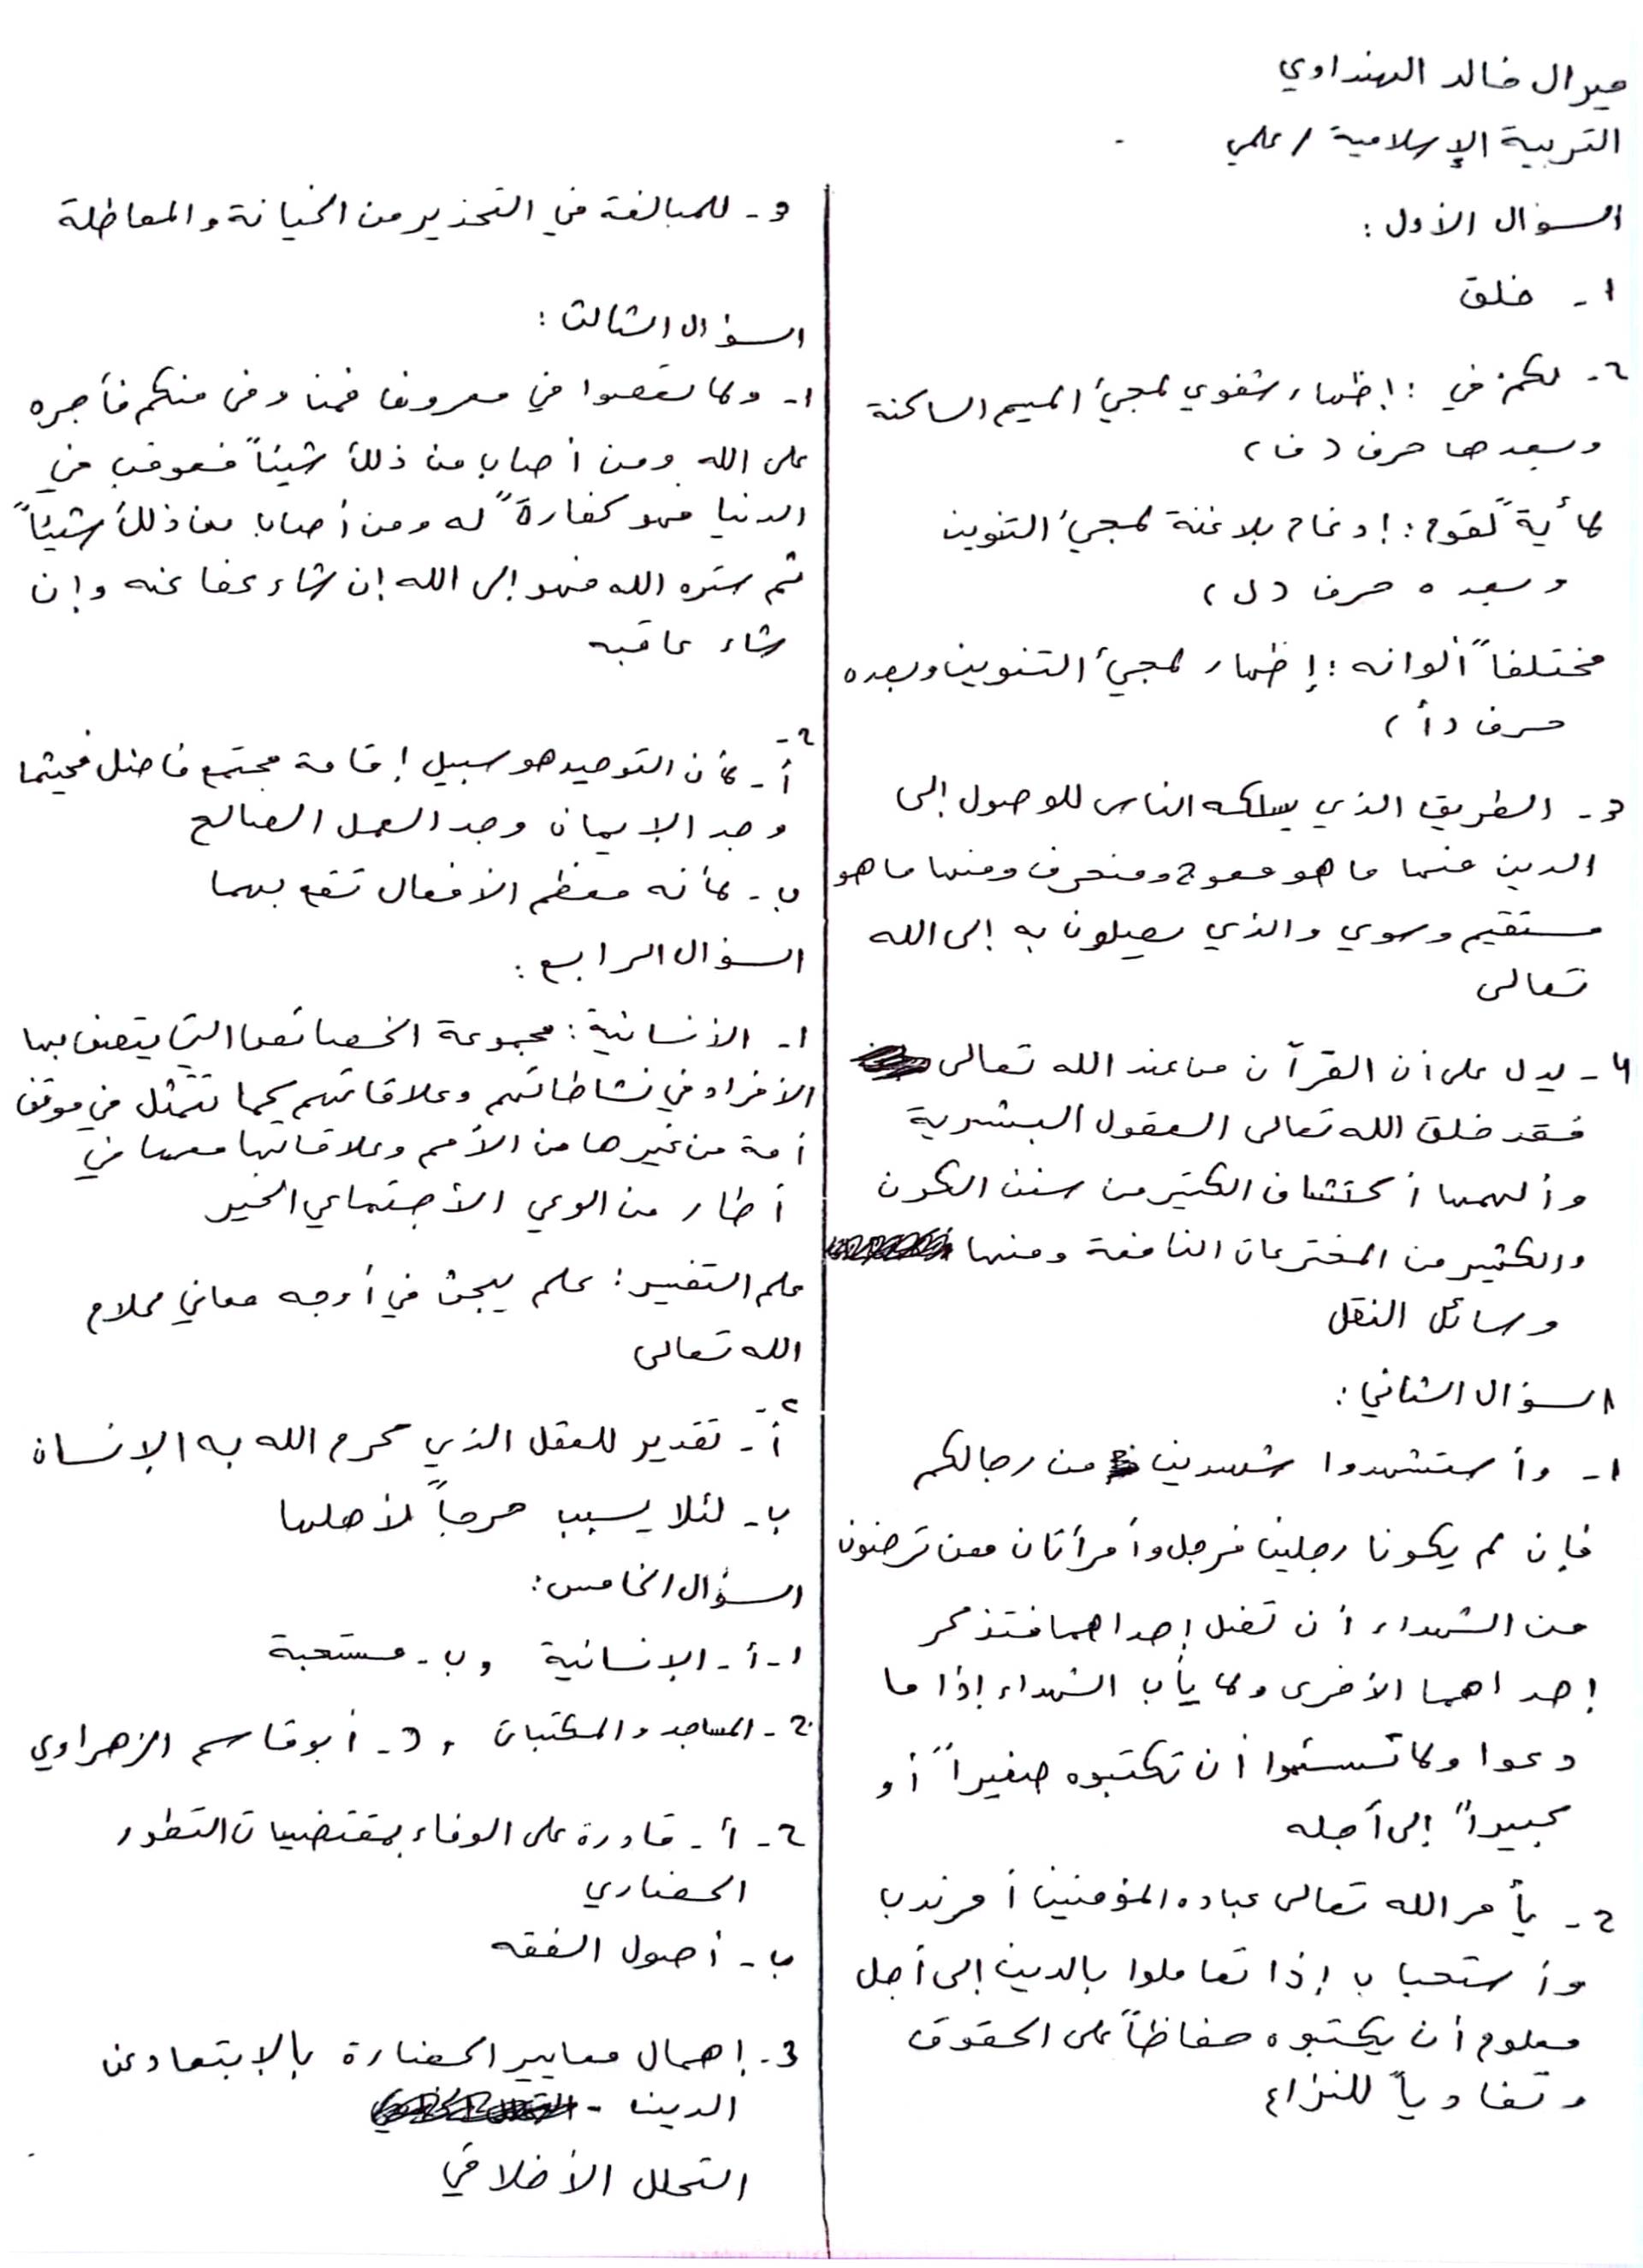 ميرال خالد الهنداوي
التربية الإسلامية / علمي
السؤال الأول :
١- خلق
٢- لكم في : إظهار شفوي لمجيئ الميم الساكنة
وبعدها حرف (ف)
لأيةً لقوم : إدغام بلا غنة لمجيئ التنوين
وبعده حرف (ل)
مختلفاً ألوانه : إظهار لمجيئ التنوين وبعده
حرف (أ)
3- الطريق الذي يسلكه الناس للوصول إلى
الدين منها ما هو معوج ومنحرف ومنها ما هو
مستقيم وسوي والذي يصلون به إلى الله
تعالى
4- يدل على أن القرآن من عند الله تعالى
فقد خلق الله تعالى العقول البشرية
وألهمها أكتشاف الكثير من سنن الكون
والكثير من المخترعات النافعة ومنها
وسائل النقل
السؤال الثاني :
١- وأستشهدوا شهيدين من رجالكم
فإن لم يكونا رجلين فرجل وأمرأتان ممن ترضون
من الشهداء أن تضل إحداهما فتذكر
إحداهما الأخرى ولا يأب الشهداء إذا ما
دعوا ولا تسئموا أن تكتبوه صغيراً أو
كبيراً إلى أجله
2- يأمر الله تعالى عباده المؤمنين أمر ندب
وأستحباب إذا تعاملوا بالدين إلى أجل
معلوم أن يكتبوه حفاظاً على الحقوق
وتفادياً للنزاع
3- للمبالغة في التحذير من الخيانة والمماطلة
السؤال الثالث :
١- ولا تعصوا في معروف فمن وفى منكم فأجره
على الله ومن أصاب من ذلك شيئاً فعوقب في
الدنيا فهو كفارةً له ومن أصاب من ذلك شيئاً
ثم ستره الله فهو إلى الله إن شاء عفا عنه وإن
شاء عاقبه
٢-
أ- لأن التوحيد هو سبيل إقامة مجتمع فاضل فحيثما
وجد الإيمان وجد العمل الصالح
ب- لأنه معظم الأفعال تقع بهما
السؤال الرابع :
١- الأنسانية : مجموعة الخصائص التي يتصف بها
الأفراد في نشاطاتهم وعلاقاتهم كما تتمثل في موقف
أمة من غيرها من الأمم وعلاقاتها معها في
أطار من الوعي الأجتماعي الخير
علم التفسير : علم يبحث في أوجه معاني كلام
الله تعالى
٢-
أ- تقدير للعقل الذي كرم الله به الإنسان
ب- لئلا يسبب حرجاً لأهلها
السؤال الخامس :
١- أ- الإنسانية , ب- مستحبة
2- المساجد والمكتبات , 3- أبو قاسم الزهراوي
٢- أ- قادرة على الوفاء بمقتضيات التطور
الحضاري
ب- أصول الفقه
3- إهمال معايير الحضارة بالابتعاد عن
الدين -
التحلل الأخلاقي